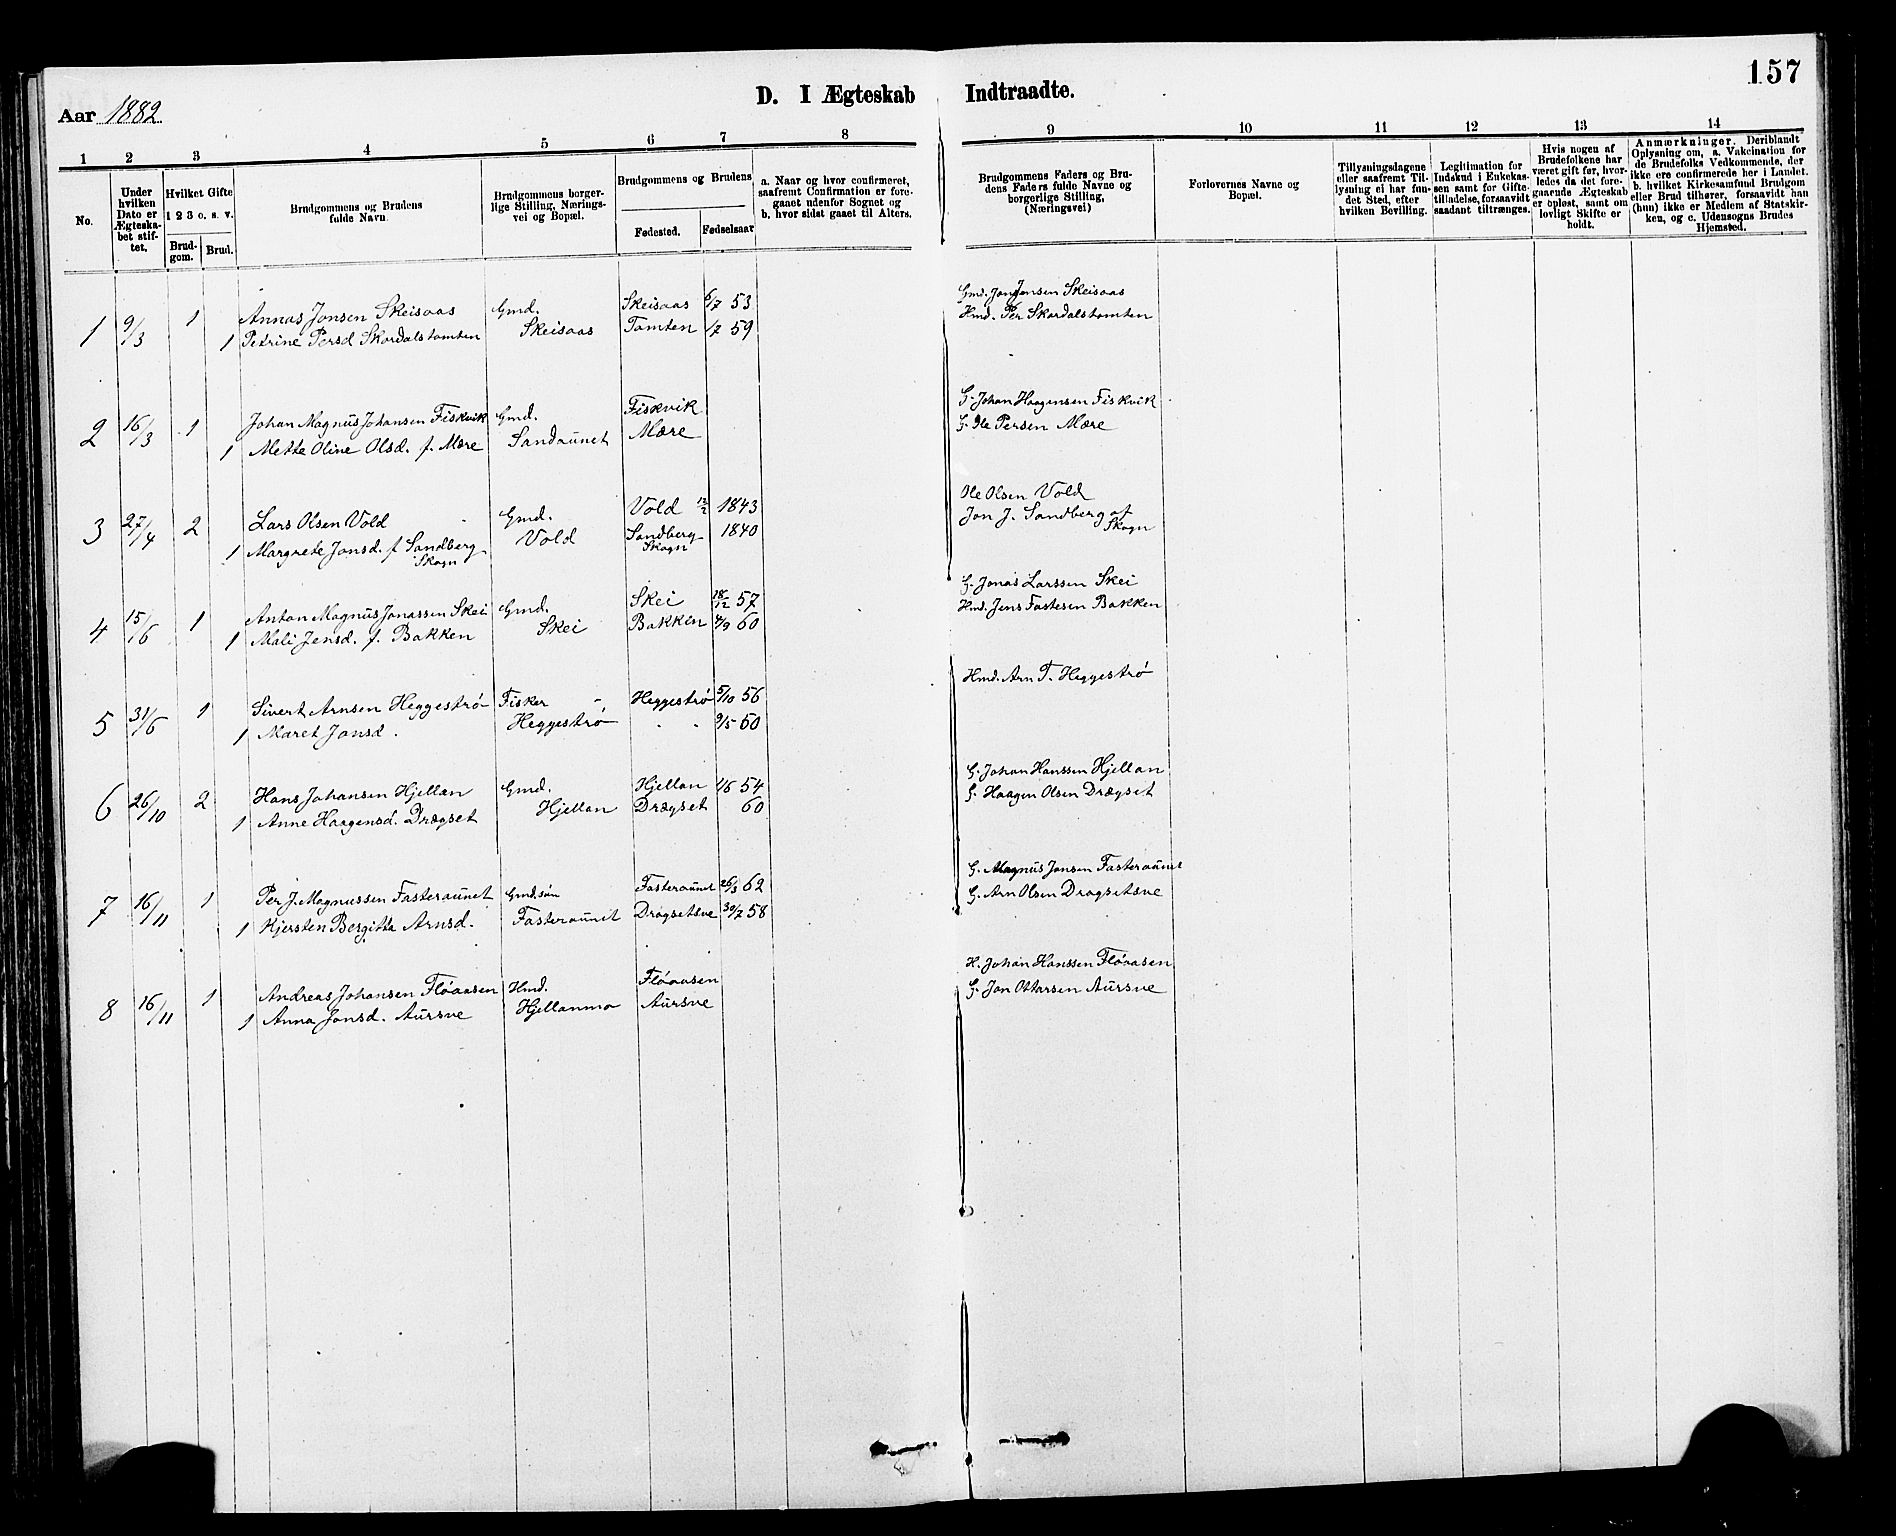 157
Aar 1882
D. I Ægteskab Indtraadte.
1 2 3 4 5 6 7 8 9 10 11 12 13 14
No.
Under hvilken Dato er Ægteskabet stiftet.
Hvilket Gifte
1 2 3 o. s. v.
Brudgom. Brud.
Brudgommens og Brudens fulde Navn.
Brudgommens borgerlige Stilling, Næringsvei og Bopæl.
Brudgommens og Brudens
Fødested. Fødselsaar
a. Naar og hvor confirmeret, saafremt Confirmation er foregaaet udenfor Sognet og
b. hvor sidst gaaet til Alters.
Brudgommens Faders og Brudens Faders fulde Navne og borgerlige Stilling, (Næringsvei)
Forlovernes Navne og Bopæl.
Tillysningsdagene eller saafremt Tillysning ei har fundet Sted, efter hvilken Bevilling.
Legitimation for Indskud i Enkekassen samt for Giftetilladelse, forsaavidt saadant tiltrænges.
Hvis nogen af Brudefolkene har været gift før, hvorledes da det foregaaende Ægteskab er opløst, samt om lovligt Skifte er holdt.
Anmærkninger. Deriblandt Oplysning om, a. Vakcination for de Brudefolks Vedkommende, der ikke ere confirmerede her i Landet. b. hvilket Kirkesamfund Brudgom eller Brud tilhører, forsaavidt han (hun) ikke er Medlem af Statskirken, og c. Udensogns Brudes Hjemsted.
1 9/3 1 Annas Jonsen Skeisaas Gmd. Skeisaas 6/7 53 Gmd. Jon Jensen Skeisaas
1 Petrine Persd Skordalstomten Skeisaas Tomten 1/7 59 Hmd. Per Skordalstomten
2 16/3 1 Johan Magnus Johansen Fiskvik Gmd. Fiskvik G. Johan Haagensen Fiskvik
1 Mette Oline Olsd. f. Mære Sandaunet Mære G. Ole Persen Mære
3 27/4 2 Lars Olsen Vold Gmd. Vold 12/2 1843 Ole Olsen Vold
1 Margrete Jonsd. f Sandberg Vold Sandberg 1840 Jon J. Sandberg af
Skogn Skogn Skogn
4 15/6 1 Anton Magnus Jonassen Skei Gmd. Skei 18/12 57 G. Jonas Larssen Skei
1 Mali Jensd. f. Bakken Skei Bakken 4/9 60 Hmd. Jens Fastesen Bakken
5 31/6 1 Sivert Arnsen Heggestrø Fisker Heggestrø 5/10 56 Hmd. Arn T. Heggestrø
1 Maret Jonsd. Heggestrø 9/5 60
6 26/10 2 Hans Johansen Hjellan Gmd. Hjellan 1/6 54 G. Johan Hanssen Hjellan
1 Anne Haagensd. Drægset Hjellan Drægset 60 G. Haagen Olsen Drægset
7 16/11 1 Per J. Magnussen Fasteraunet Gmd.søn Fasteraunet 26/3 62 G. Magnus Jonsen Fasteraunet
1 Kjersten Bergitta Arnsd. Fasteraunet Drogsetsve 30/7 58 G. Arn Olsen Drogsetsve
8 16/11 1 Andreas Johansen Fløaasen Hmd. Fløaasen H. Johan Hanssen Fløaasen
1 Anna Jonsd. Aursve Hjellanmo Aursve G. Jon Ottarsen Aursve